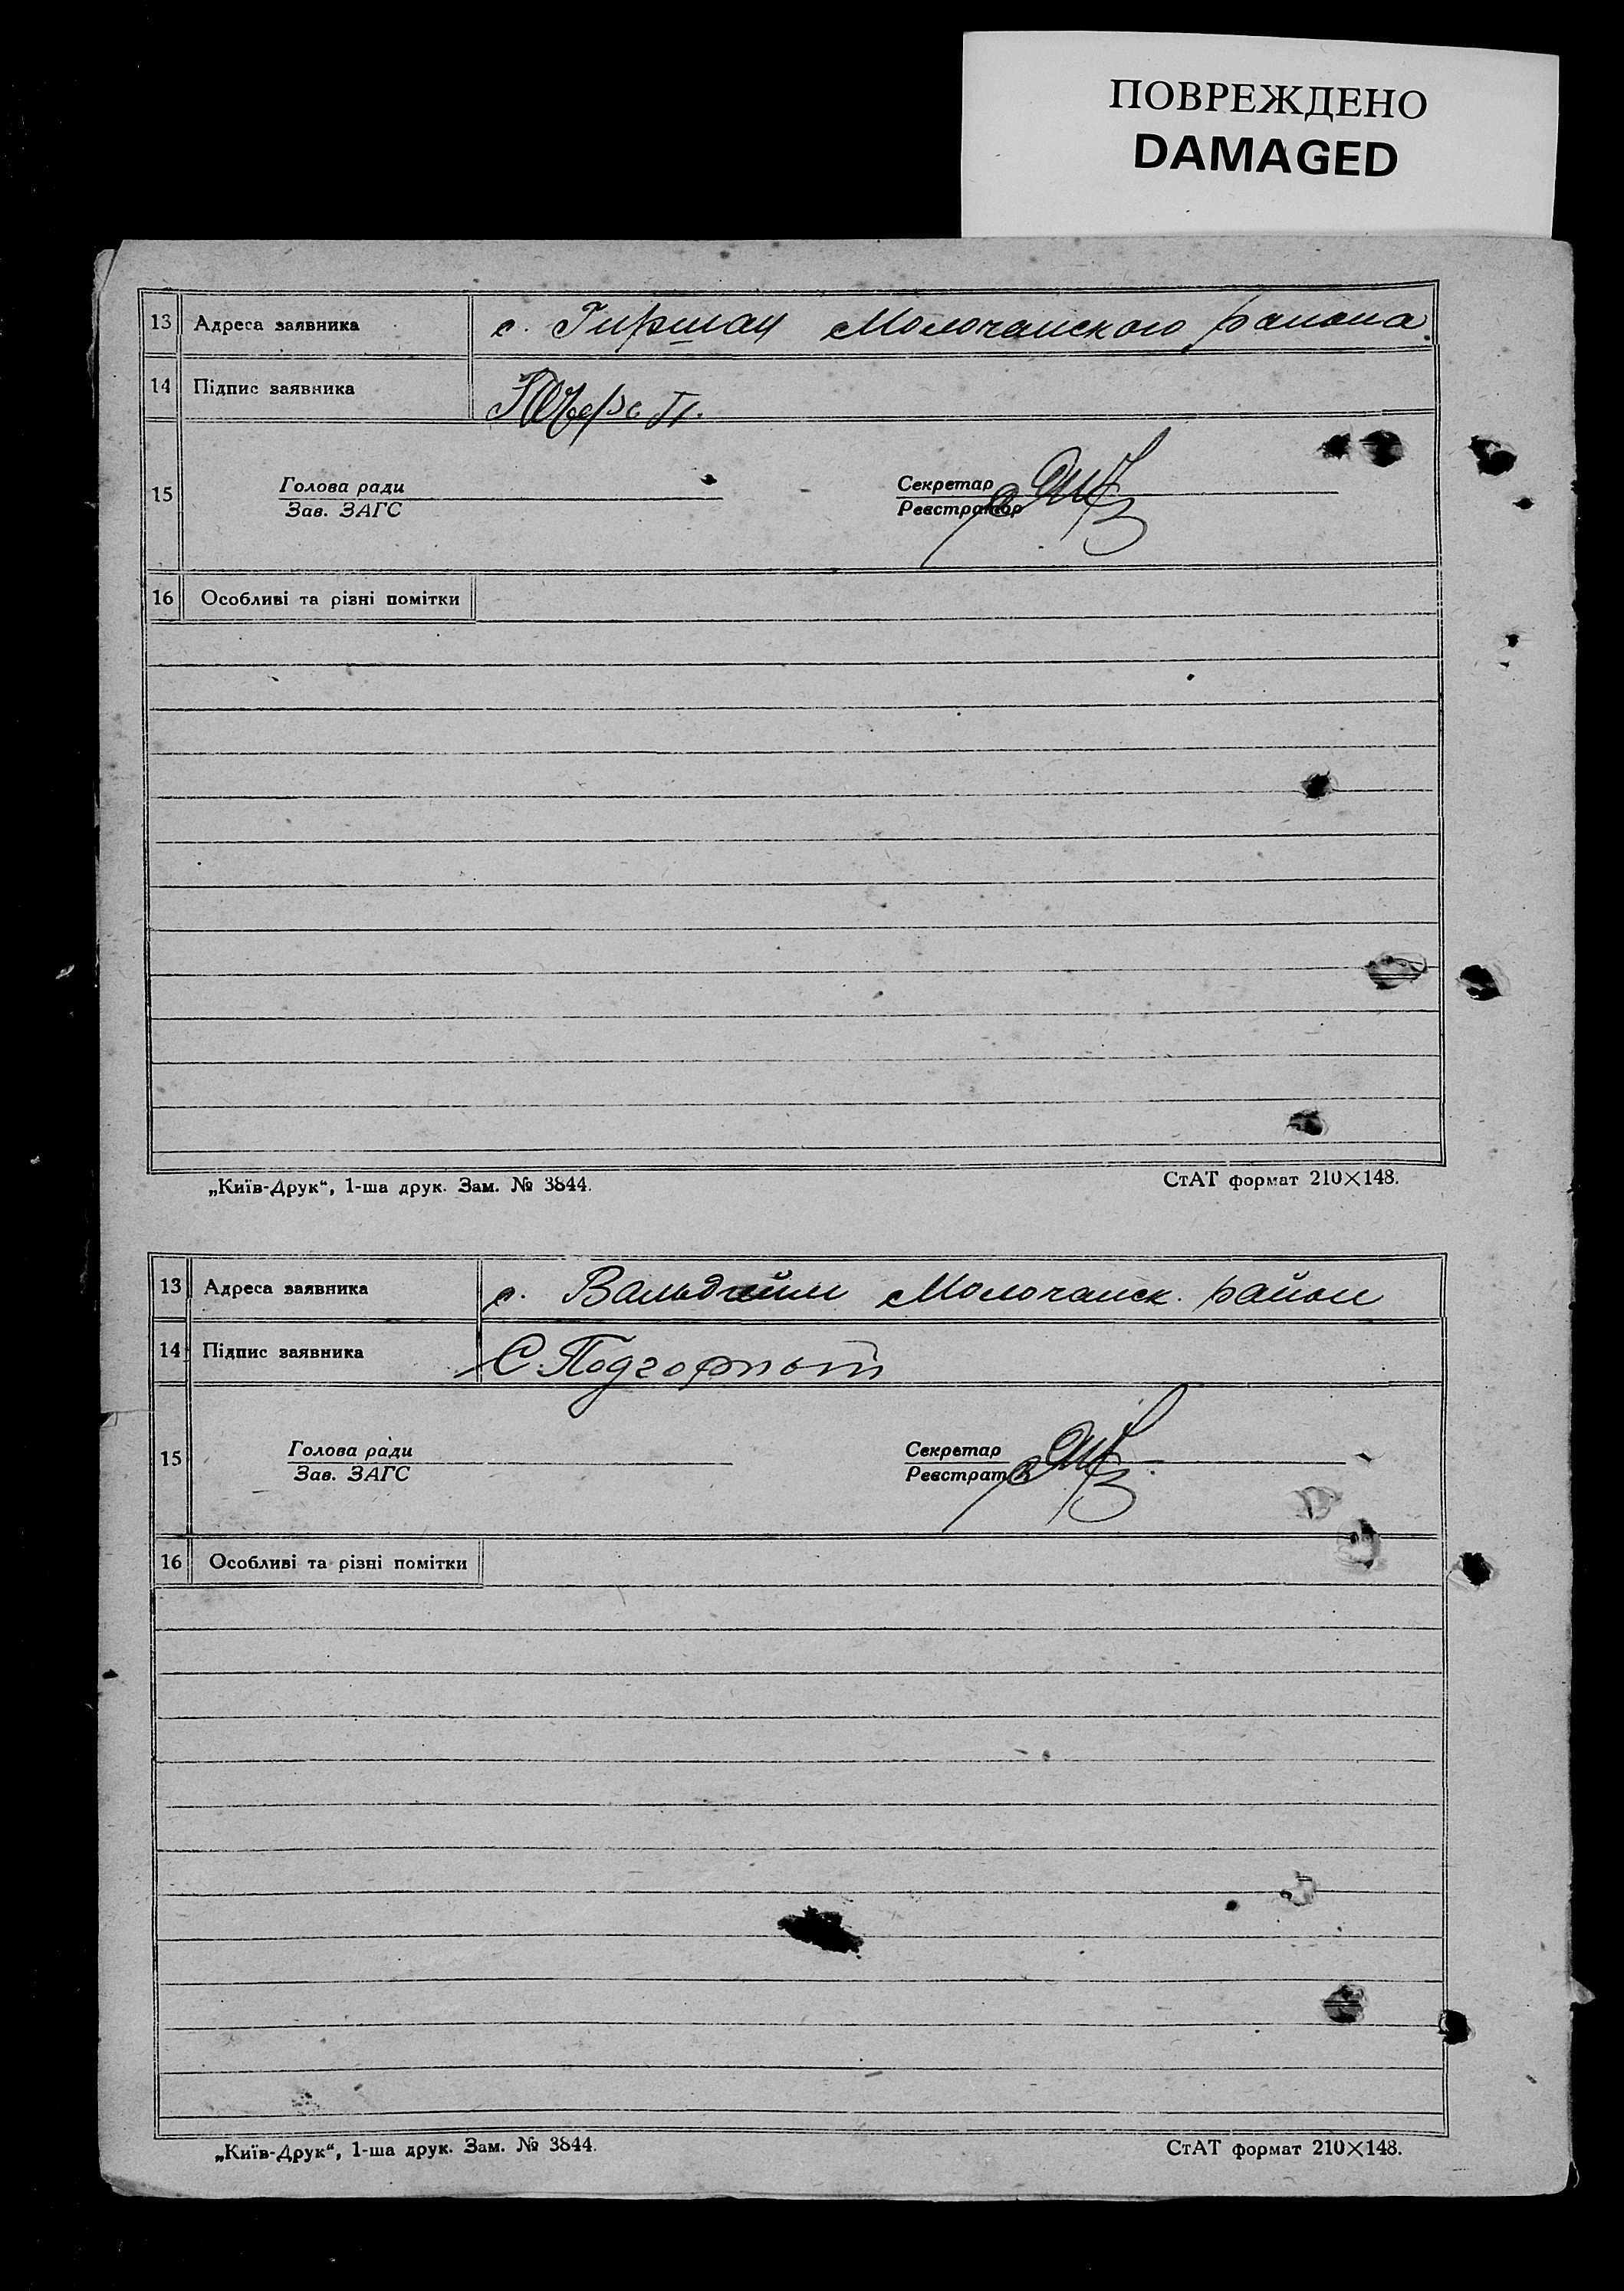 ПОВРЕЖДЕНО
DAMAGED
13 Адреса заявника с. Гиршау Молочанского района
14 Підпис заявника П.
15 Голова ради Секретар
Зав. ЗАГС Реєстратор
16 Особливі та різні помітки
„Київ-Друк“, 1-ша друк. Зам. № 3844. СтАТ формат 210×148.
13 Адреса заявника с. Вальдгейм Молочанск. район
14 Підпис заявника С.
15 Голова ради Секретар
Зав. ЗАГС Реєстрат
16 Особливі та різні помітки
„Київ-Друк“, 1-ша друк. Зам. № 3844. СтАТ формат 210×148.